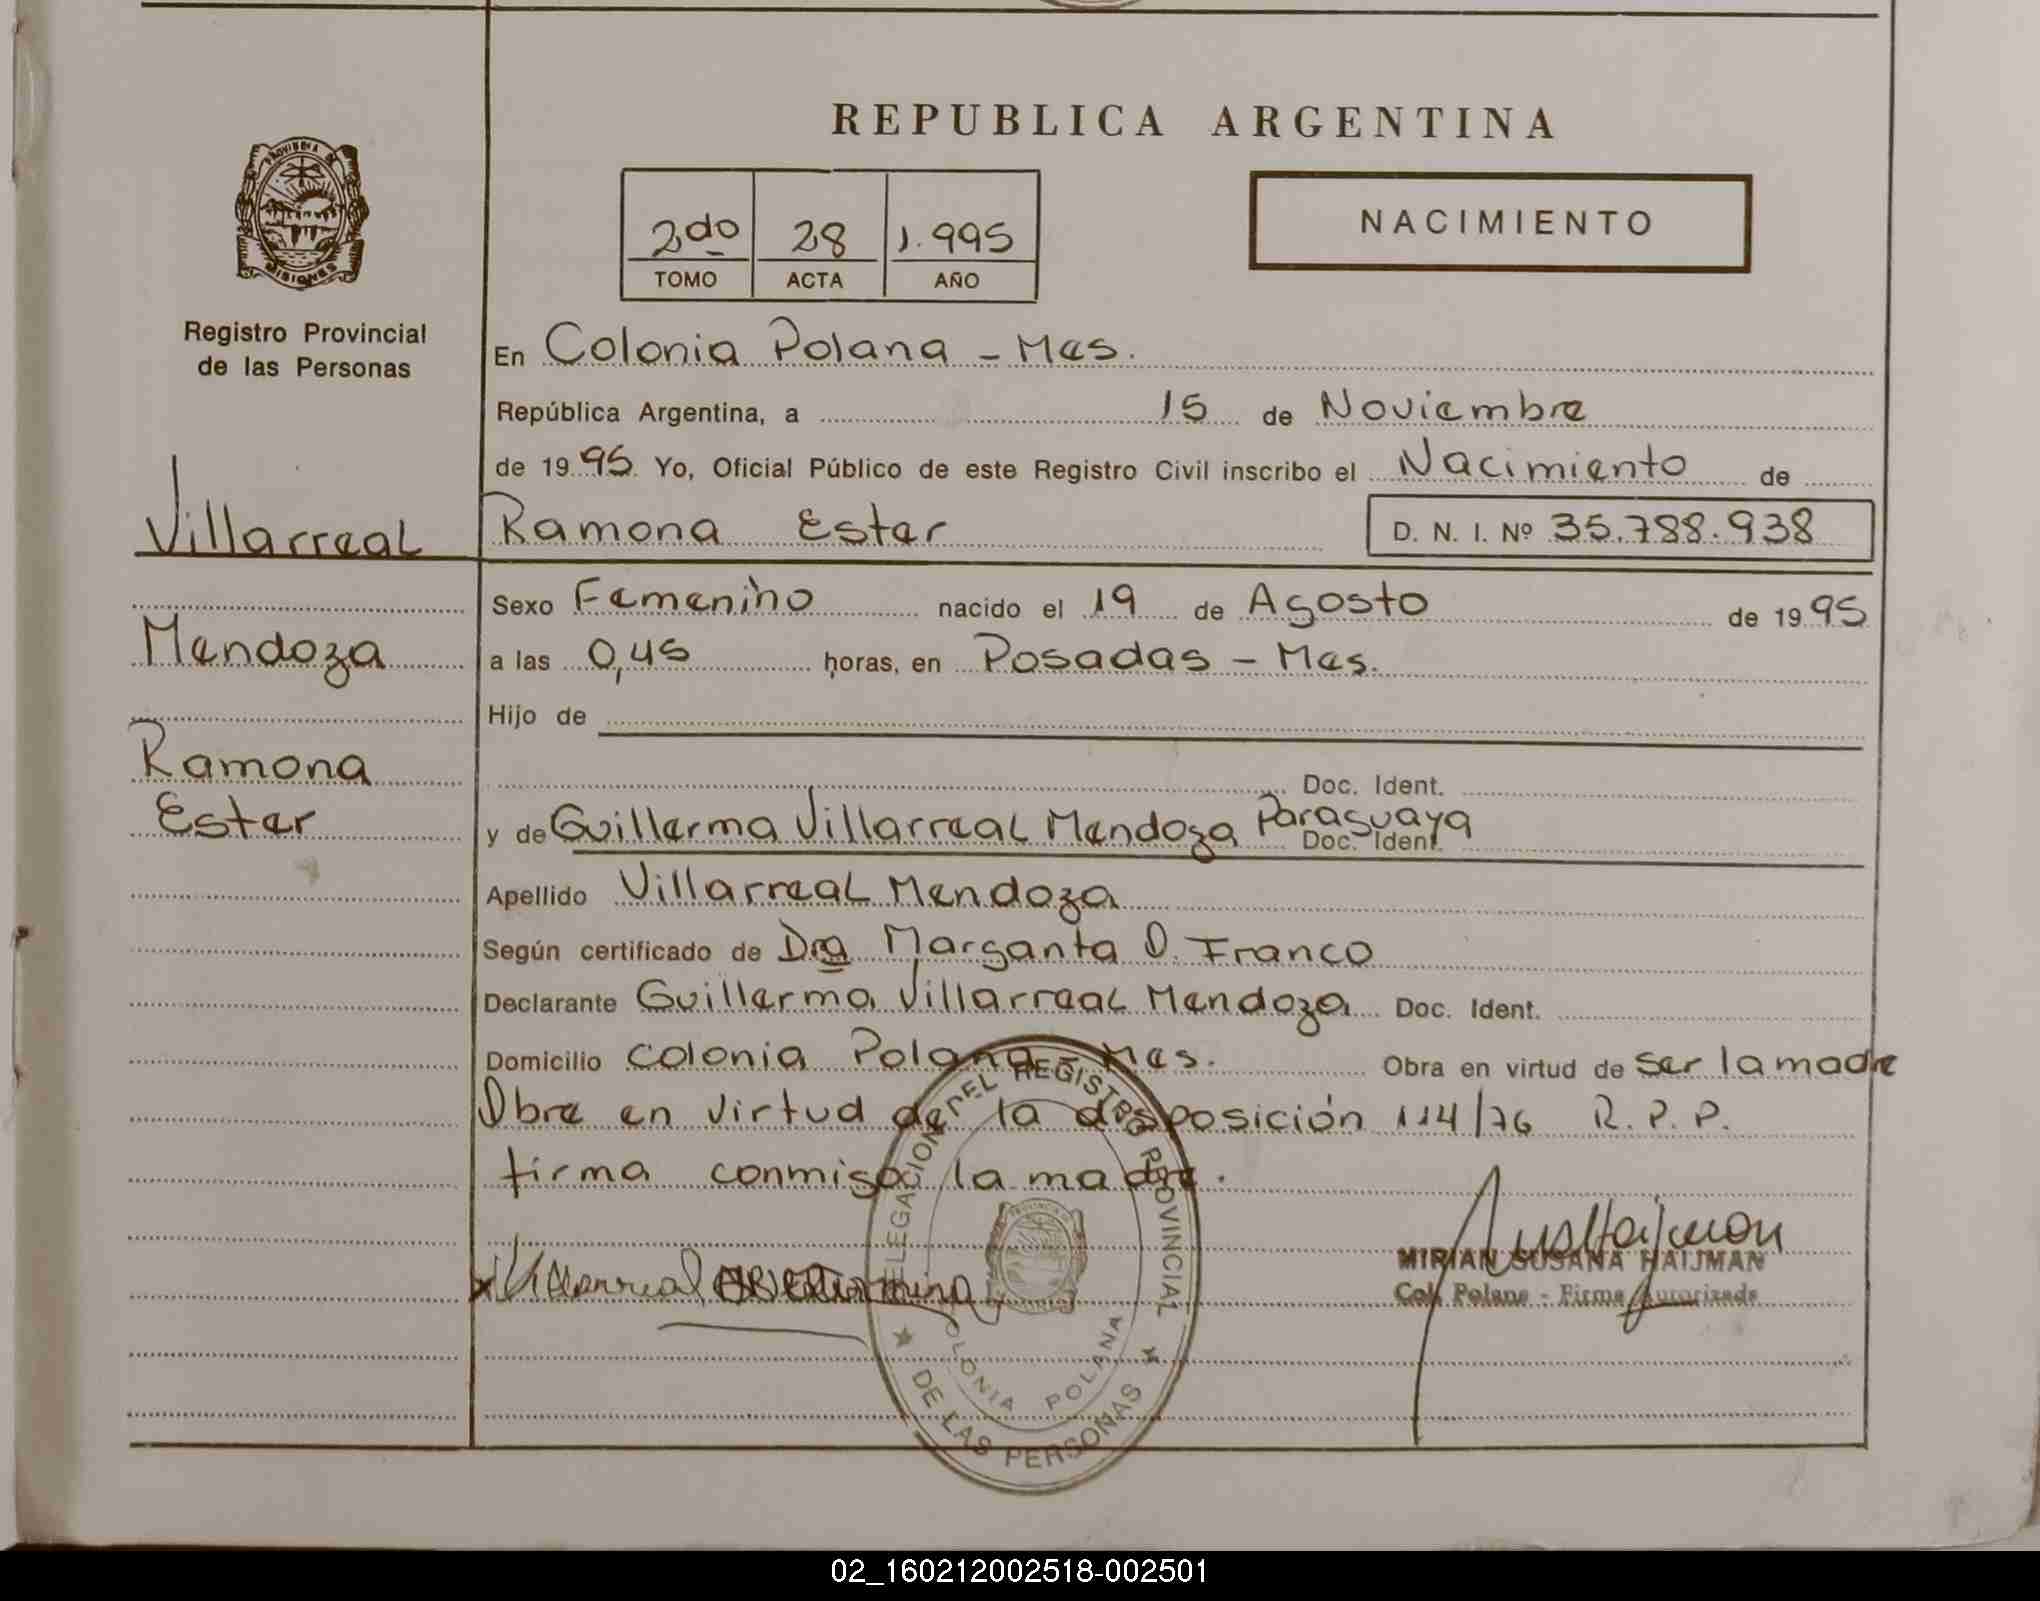 REPUBLICA ARGENTINA
PROVINCIA DE MISIONES
Registro Provincial
de las Personas
2do 28 1.995
TOMO ACTA AÑO
NACIMIENTO
En Colonia Polana - Mes.
República Argentina, a 15 de Noviembre
de 1995 Yo, Oficial Público de este Registro Civil inscribo el Nacimiento de
Villarreal Ramona Ester D. N. I. Nº 35.788.938
Sexo Femenino nacido el 19 de Agosto de 1995
Mendoza
a las 0,45 horas, en Posadas - Mes.
Hijo de
Ramona
Doc. Ident.
Ester
y de Guillerma Villarreal Mendoza Paraguaya Doc. Ident.
Apellido Villarreal Mendoza
Según certificado de Dra Margarita D. Franco
Declarante Guillerma Villarreal Mendoza Doc. Ident.
Domicilio Colonia Polana Mes. Obra en virtud de Ser la madre
Obre en virtud de la disposición 114/76 R. P. P.
firma conmigo la madre.
Villarreal
MIRIAN SUSANA HAIJMAN
Col. Polana - Firma Autorizada
DELEGACION DEL REGISTRO PROVINCIAL
DE LAS PERSONAS
COLONIA POLANA
02_160212002518-002501